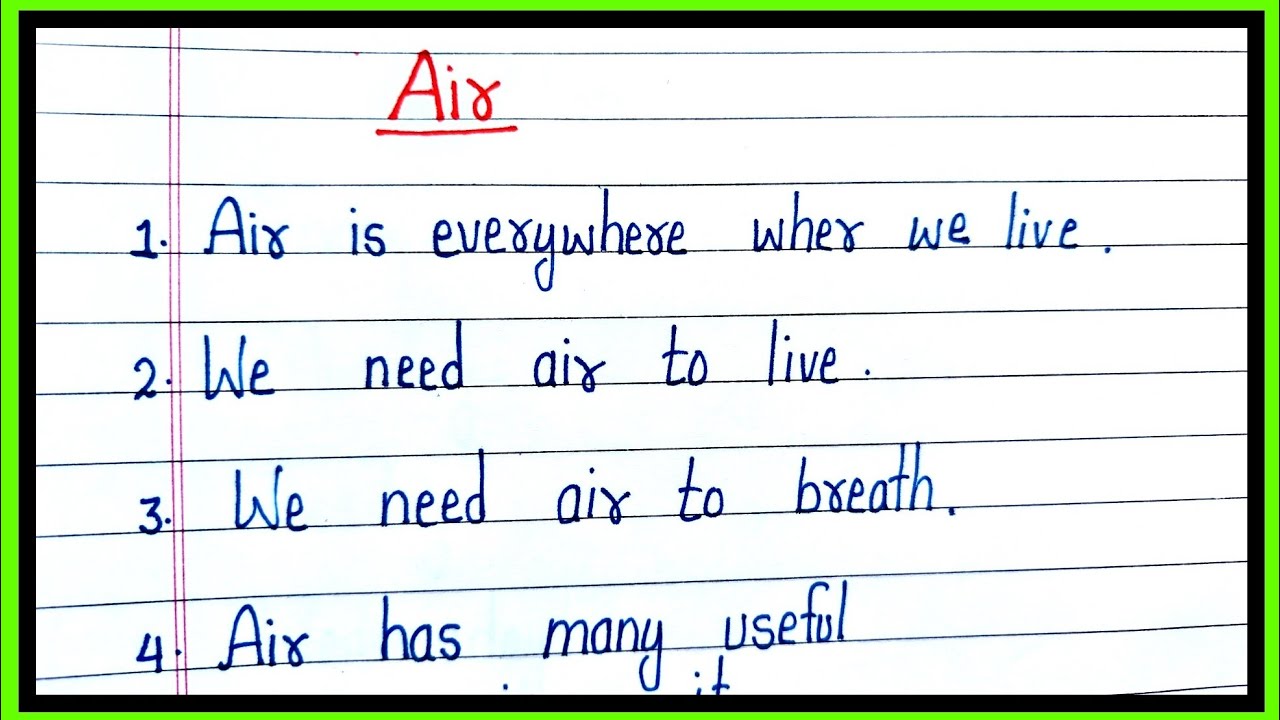 Air
1. Air is everywhere wher we live.
2. We need air to live.
3. We need air to breath.
4. Air has many useful